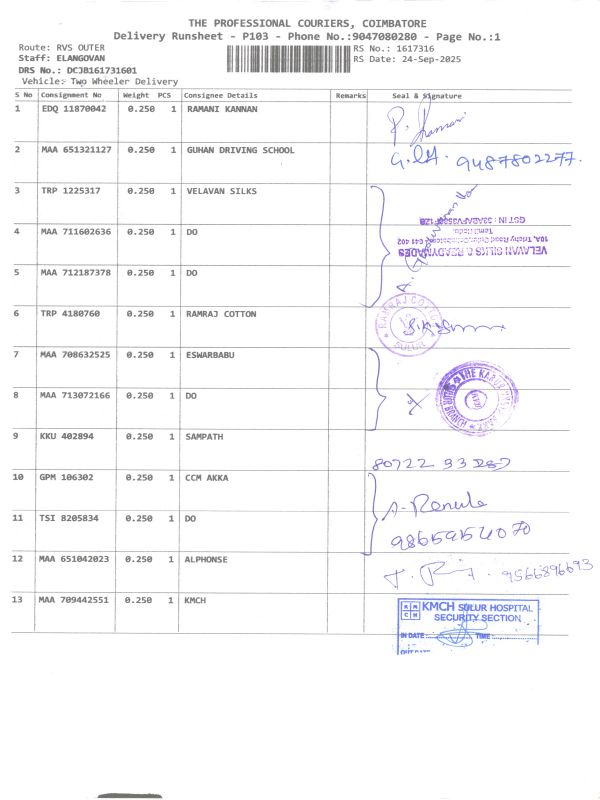 THE PROFESSIONAL COURIERS, COIMBATORE
Delivery Runsheet - P103 - Phone No.:9047080280 - Page No.:1
Route: RVS OUTER RS No.: 1617316
Staff: ELANGOVAN RS Date: 24-Sep-2025
DRS No.: DCJB161731601
Vehicle: Two Wheeler Delivery
S No Consignment No Weight PCS Consignee Details Remarks Seal & Signature
1 EDQ 11870042 0.250 1 RAMANI KANNAN
2 MAA 651321127 0.250 1 GUHAN DRIVING SCHOOL 9487802277.
3 TRP 1225317 0.250 1 VELAVAN SILKS
4 MAA 711602636 0.250 1 DO
VELAVAN SILKS & READYMADES
5 MAA 712187378 0.250 1 DO
6 TRP 4180760 0.250 1 RAMRAJ COTTON
RAMRAJ COTTON
SULUR
7 MAA 708632525 0.250 1 ESWARBABU
8 MAA 713072166 0.250 1 DO
9 KKU 402894 0.250 1 SAMPATH
10 GPM 106302 0.250 1 CCM AKKA
A. Renuka
11 TSI 8205834 0.250 1 DO
12 MAA 651042023 0.250 1 ALPHONSE 9566896693
13 MAA 709442551 0.250 1 KMCH
KMCH SULUR HOSPITAL
SECURITY SECTION
IN DATE: TIME: